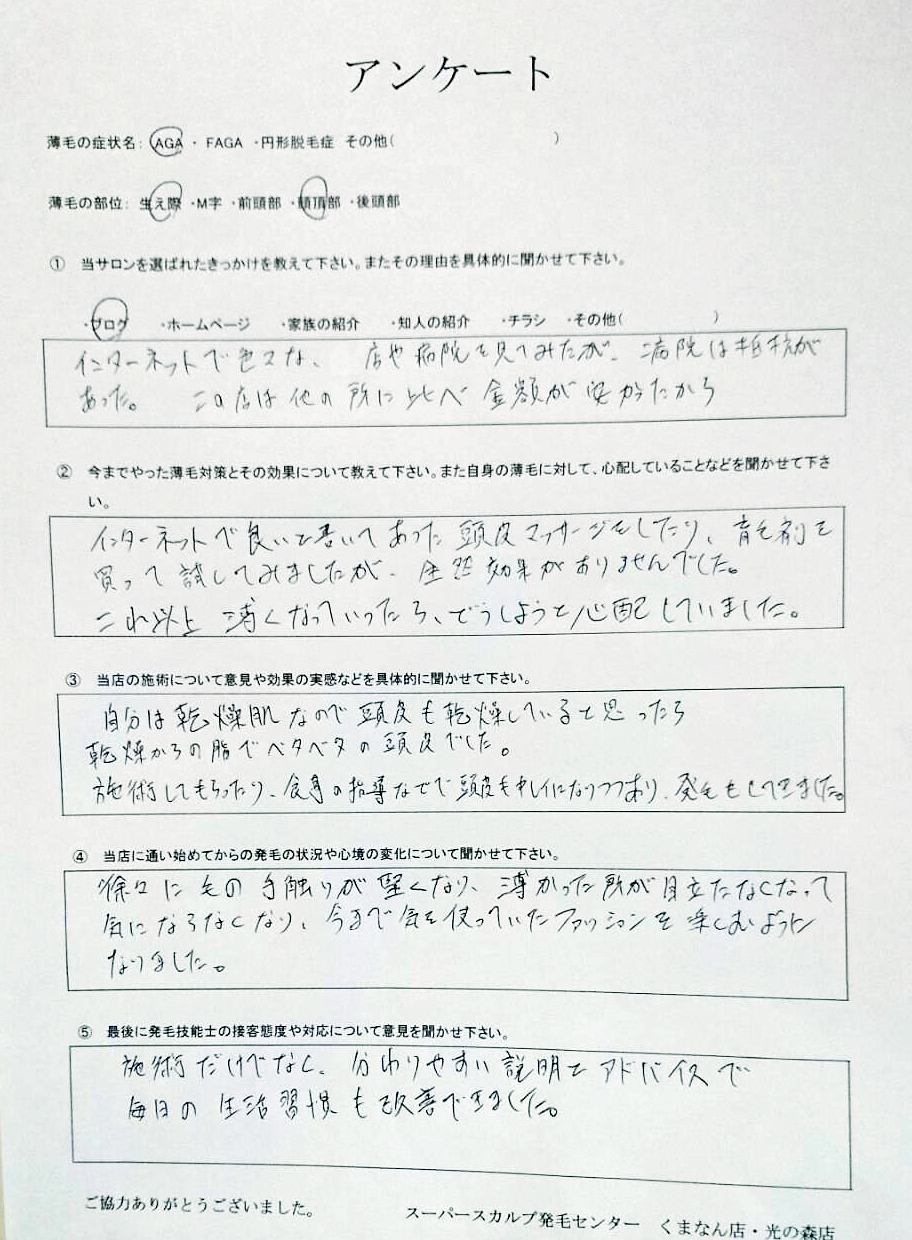 アンケート
薄毛の症状名: AGA ・ FAGA ・円形脱毛症 その他( )
薄毛の部位: 生え際 ・M字 ・前頭部 ・頭頂部 ・後頭部
① 当サロンを選ばれたきっかけを教えて下さい。またその理由を具体的に聞かせて下さい。
・ブログ ・ホームページ ・家族の紹介 ・知人の紹介 ・チラシ ・その他( )
インターネットで色々な、店や病院を見てみたが、病院は抵抗が
あった。 この店は他の所に比べ金額が安かったから
② 今までやった薄毛対策とその効果について教えて下さい。また自身の薄毛に対して、心配していることなどを聞かせて下さ
い。
インターネットで良いと書いてあった頭皮マッサージをしたり、育毛剤を
買って試してみましたが、全然効果がありませんでした。
これ以上薄くなっていったら、どうしようと心配していました。
③ 当店の施術について意見や効果の実感などを具体的に聞かせて下さい。
自分は乾燥肌なので頭皮も乾燥していると思ったら
乾燥からの脂でベタベタの頭皮でした。
施術してもらったり、食事の指導などで頭皮もキレイになりつつあり、発毛もしてきました。
④ 当店に通い始めてからの発毛の状況や心境の変化について聞かせて下さい。
徐々に毛の手触りが堅くなり、薄かった所が目立たなくなって
気にならなくなり、今まで気を使っていたファッションを楽しむように
なりました。
⑤ 最後に発毛技能士の接客態度や対応について意見を聞かせ下さい。
施術だけでなく、分わりやすい説明とアドバイスで
毎日の生活習慣も改善できました。
ご協力ありがとうございました。
スーパースカルプ発毛センター くまなん店・光の森店